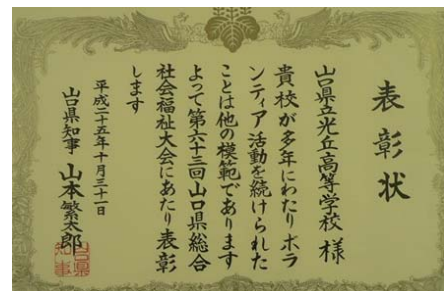 表彰状
山口県立光丘高等学校 様
貴校が多年にわたりボラ
ンティア活動を続けられた
ことは他の模範であります
よって第六十三回山口県総合
社会福祉大会にあたり表彰
します
平成二十五年十月三十一日
山口県知事 山本繁太郎